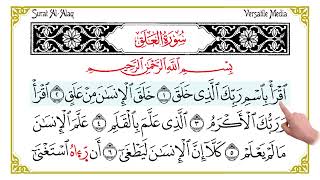 Surat Al-Alaq
Versatile Media
سُورَةُ الْعَلَقِ
بِسْمِ اللَّهِ الرَّحْمَٰنِ الرَّحِيمِ
ٱقْرَأْ بِٱسْمِ رَبِّكَ ٱلَّذِى خَلَقَ ۝١ خَلَقَ ٱلْإِنسَٰنَ مِنْ عَلَقٍ ۝٢ ٱقْرَأْ
وَرَبُّكَ ٱلْأَكْرَمُ ۝٣ ٱلَّذِى عَلَّمَ بِٱلْقَلَمِ ۝٤ عَلَّمَ ٱلْإِنسَٰنَ
مَا لَمْ يَعْلَمْ ۝٥ كَلَّآ إِنَّ ٱلْإِنسَٰنَ لَيَطْغَىٰٓ ۝٦ أَن رَّءَاهُ ٱسْتَغْنَىٰٓ